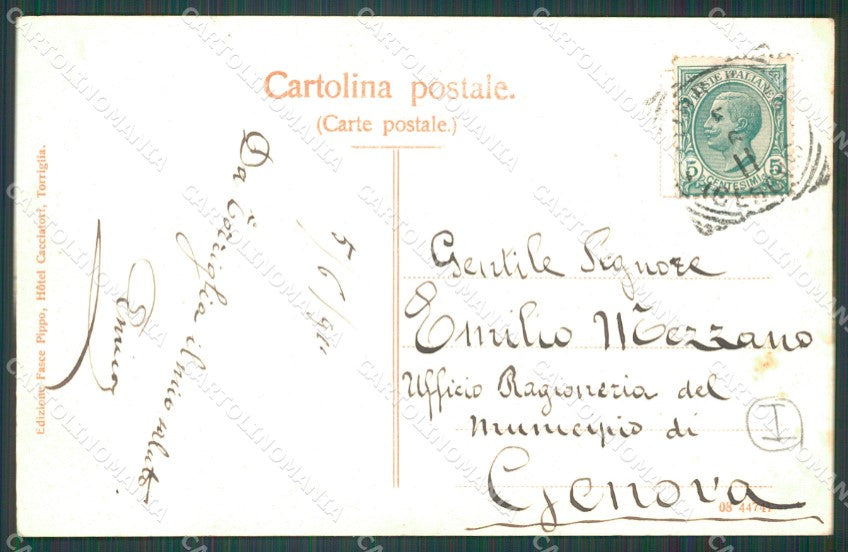 Cartolina postale.
(Carte postale.)
POSTE ITALIANE
5 CENTESIMI 5
Edizione Fasce Pippo, Hôtel Cacciatori, Torriglia.
Da Torriglia il mio saluto
Gentile Signore
Emilio Mezzano
Ufficio Ragioneria del
Municipio di
Genova
I
08 44747
CARTOLINOMANIA